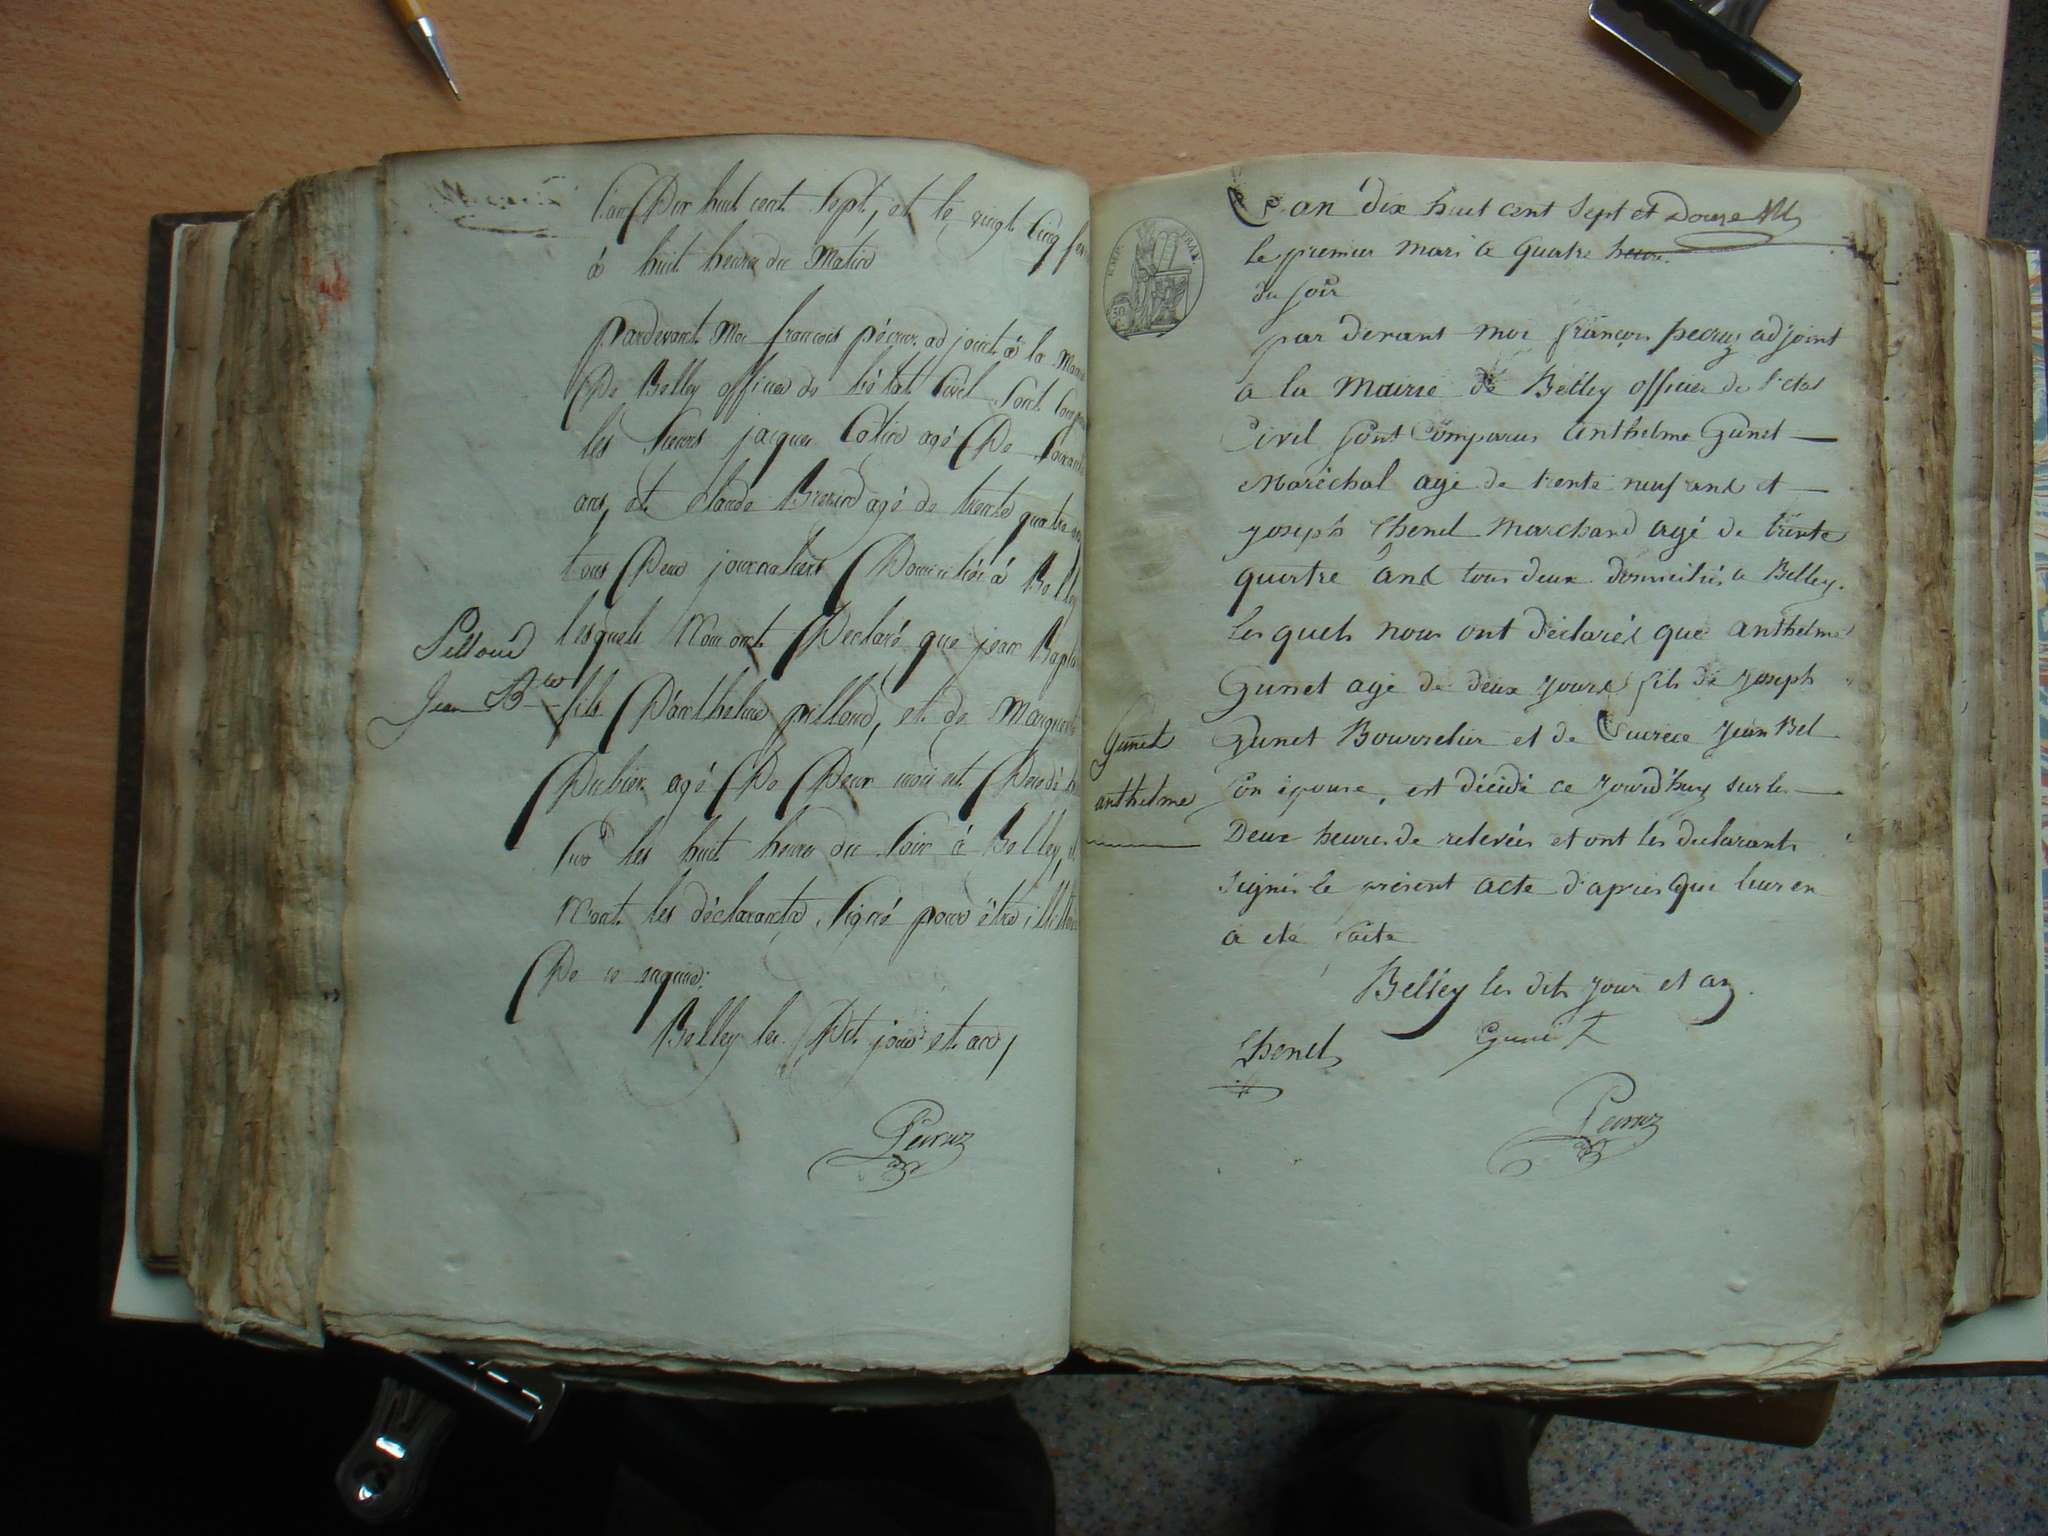 L'an Dix huit cent Sept, et le vingt Cinq
à huit heures du Matin
Pardevant Moi françois pécruz adjoint à la
De Belley officier de l'état Civil Sont
les Sieurs jacques Cotin agé De
ans, et claude agé de trente quatre
tous Deux journaliers Domiciliés à Belley
Pilloud
lesquels Nous ont Déclaré que jean
Jean Bte
fils D'anthelme pilloud, et de
Dubier agé De Deux mois est Décédé
les huit heures du Soir à Belley,
N'ont les déclarants Signé pour être
De ce requis.
Belley les Dit jour et an,
Pecruz
L'an dix huit cent Sept et Douze
le premier mars a quatre heure
du soir
par devant moi françois pecruz adjoint
a la Mairie de Belley officier de l'etat
Civil Sont Comparus anthelme Gunet
Maréchal agé de trente neuf ans et
Joseph Thenel Marchand agé de trente
quatre ans tous deux domiciliés a Belley.
Les quels nous ont déclarés que anthelme
Gunet agé de deux jours fils de Joseph
Gunet
Gunet Bourrelier et de
anthelme
Son épouse, est décédé ce jourd'huy sur les
Deux heures de relevées et ont les declarants
Signés le présent acte d'après que leur en
a eté faite
Belley les dits jour et an.
Thenel
Gunet
Pecruz
EMP. FRAN.
50